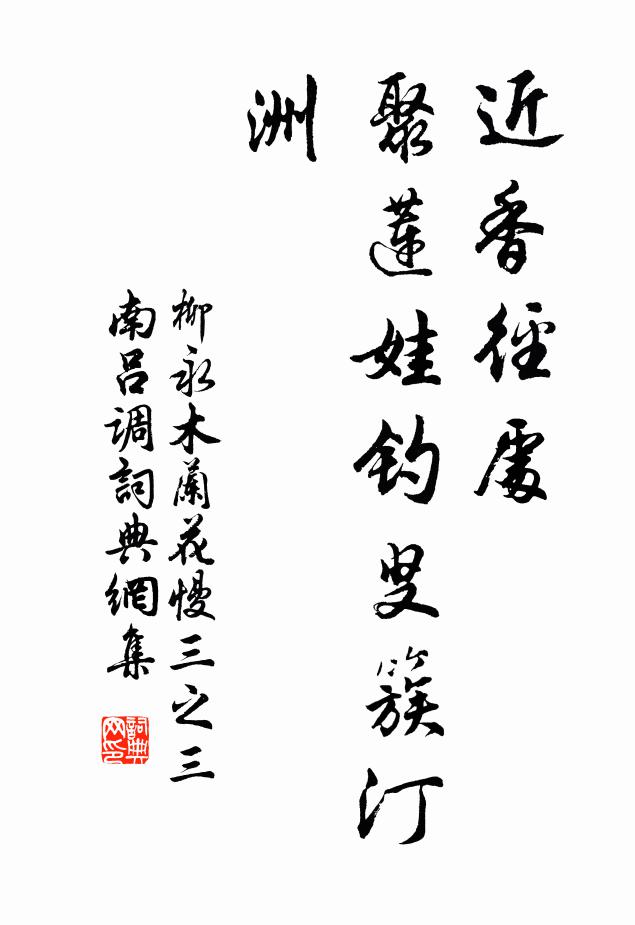 近香徑處
聚蓮娃釣叟簇汀
洲
柳永木蘭花慢三之三
南呂調詞典網集
詞典
网印